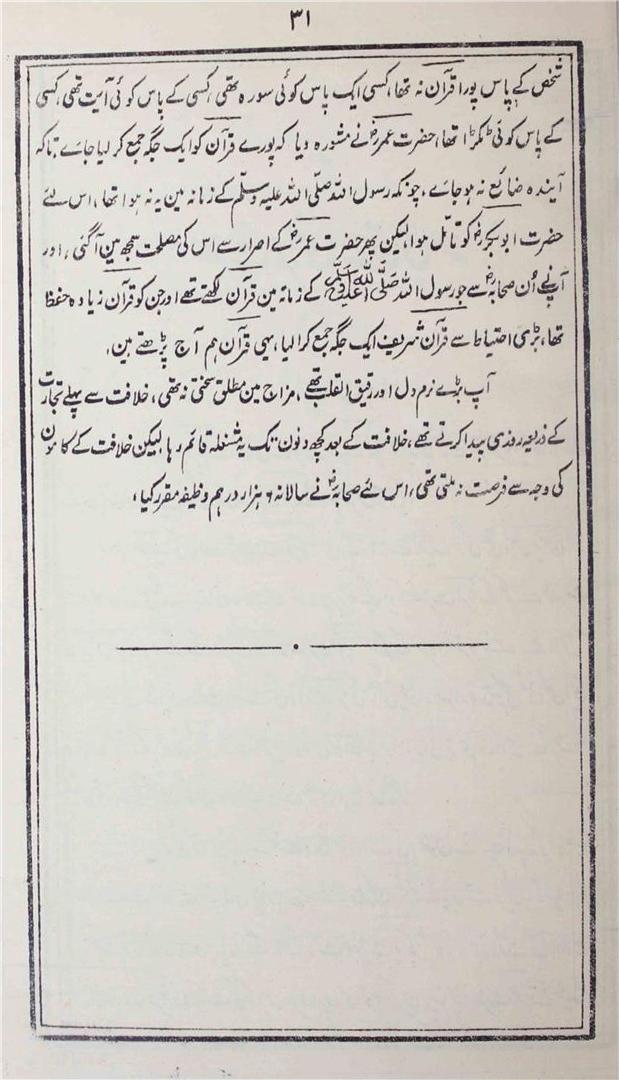 ۳۱
شخص کے پاس پورا قرآن نہ تھا، کسی ایک پاس کوئی سورہ تھی، کسی کے پاس کوئی آیت تھی، کسی
کے پاس کوئی ٹکڑا تھا، حضرت عمرؓ نے مشورہ دیا کہ پورے قرآن کو ایک جگہ جمع کر لیا جائے، تاکہ
آیندہ ضائع نہ ہو جائے، چونکہ رسول اللہ صلی اللہ علیہ وسلم کے زمانہ مین یہ نہ ہوا تھا، اس لئے
حضرت ابوبکرؓ کو تامل ہوا، لیکن پھر حضرت عمرؓ کے اصرار سے اس کی مصلحت سمجھ مین آگئی، اور
آپنے اُن صحابہؓ سے جو رسول اللہ ﷺ کے زمانہ مین قرآن لکھتے تھے اور جن کو قرآن زیادہ حفظ
تھا، بڑی احتیاط سے قرآن شریف ایک جگہ جمع کرا لیا، یہی قرآن ہم آج پڑھتے ہین،
آپ بڑے نرم دل اور رقیق القلب تھے، مزاج مین مطلق سختی نہ تھی، خلافت سے پہلے تجارت
کے ذریعہ روزی پیدا کرتے تھے، خلافت کے بعد کچھ دنون تک یہ مشغلہ قائم رہا لیکن خلافت کے کامون
کی وجہ سے فرصت نہ ملتی تھی، اس لئے صحابہؓ نے سالانہ ۶ ہزار درہم وظیفہ مقرر کیا،